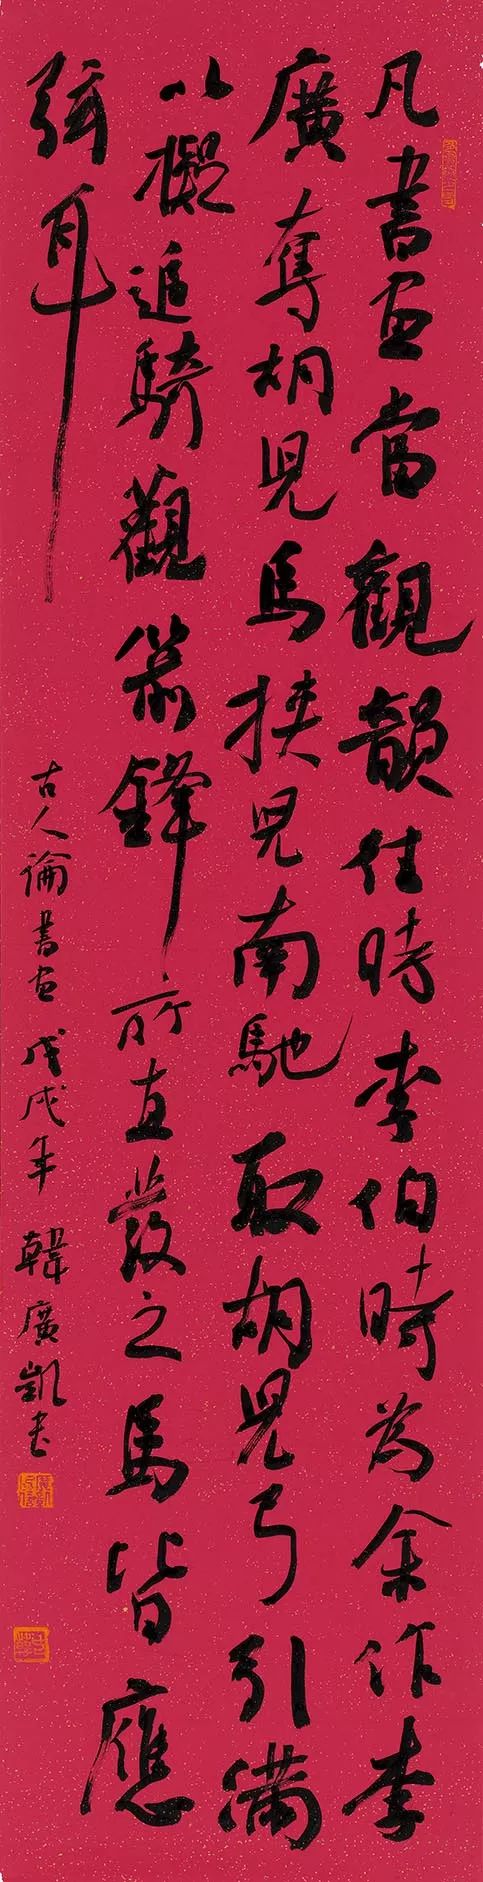 凡書畫當觀韻往時李伯時為余作李
廣奪胡兒馬挾兒南馳取胡兒弓引滿
以擬追騎觀箭鋒所直發之馬皆應
弦耳
古人論書畫戊戌年韓廣凱书